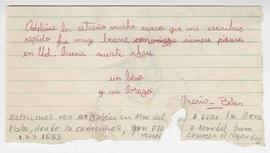 Adelina la extraño mucho espero que me escribas
rapido fue muy buena conmigo siempre pienso
en Ud. buena suerte chau
un beso
y un abrazo
María-Belén
Estuvimos con Mª Belén en Mar del
Plata, desde la conocimos, con Flor
A Flor la llevé
a Mar del para
conocer el